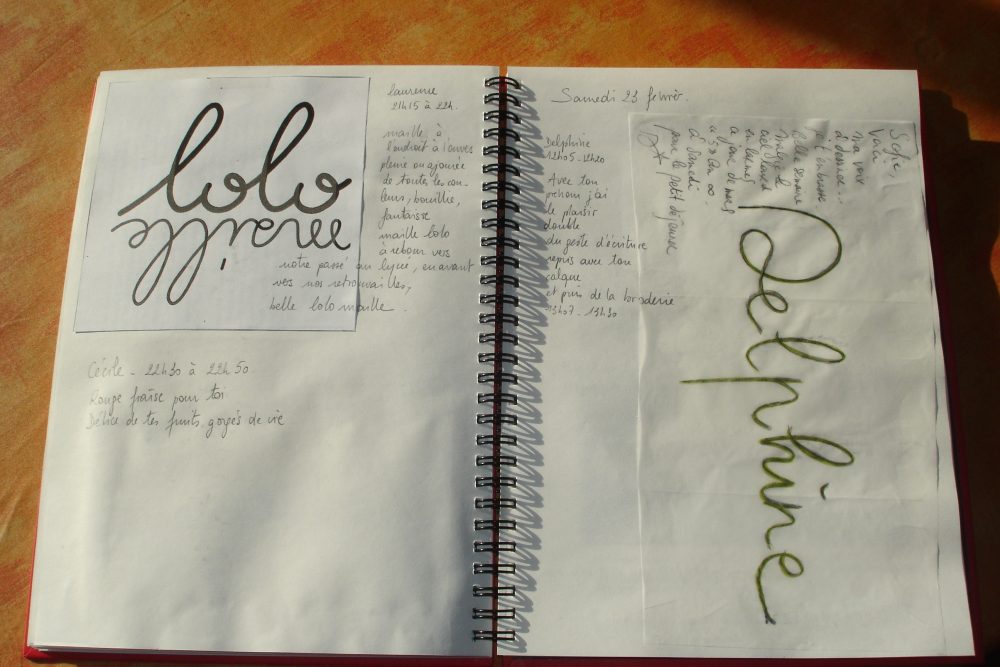 lolo
laurence
21h15 à 22h.
maille à
l'endroit à l'envers
pleine ou ajourée
de toutes les cou-
leurs, bouillie,
fantaisie
maille lolo
à rebours vers
notre passé au lycée, en avant
vers nos retrouvailles,
belle lolo maille.
Cécile - 22h30 à 22h50
Rouge fraise pour toi
Délice de tes fruits gorgés de vie
Samedi 23 février.
Delphine
12h05-12h20
Avec ton
prénom j'ai
le plaisir
double
du geste d'écriture
repris avec ton
calque
et puis de la broderie
13h07-13h30
Sofie,
Voici
ma voix
à Samedi
pour le petit déjeuner
Delphine